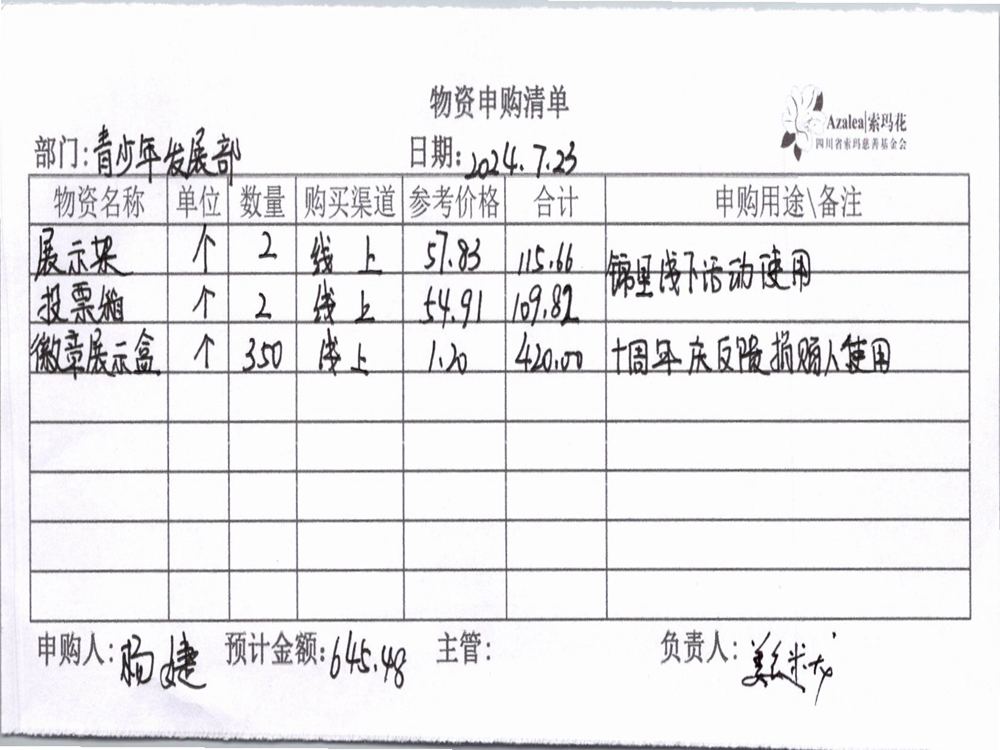 物资申购清单
Azalea|索玛花
四川省索玛慈善基金会
部门:青少年发展部 日期:2024.7.23
物资名称 单位 数量 购买渠道 参考价格 合计 申购用途\备注
展示架 个 2 线上 57.83 115.66 锦里线下活动使用
投票箱 个 2 线上 54.91 109.82
徽章展示盒 个 350 线上 1.20 420.00 十周年庆反馈捐赠人使用
申购人:杨婕 预计金额:645.48 主管: 负责人: